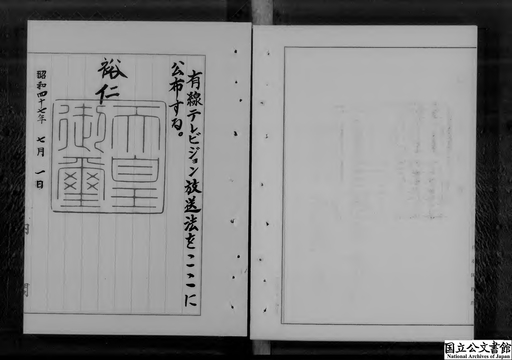 有線テレビジョン放送法をここに
公布する。
裕仁
天皇
御璽
昭和四十七年 七月 一日
国立公文書館
National Archives of Japan